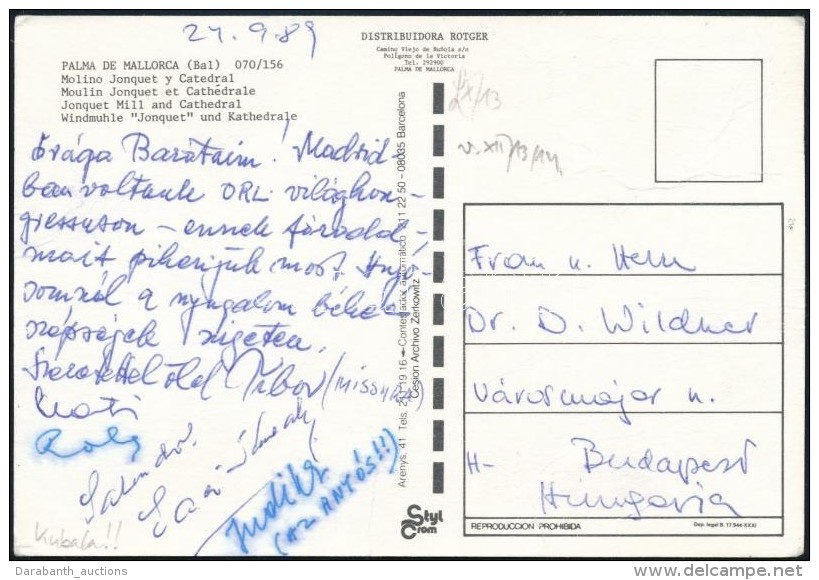 27.9.89
PALMA DE MALLORCA (Bal) 070/156
Molino Jonquet y Catedral
Moulin Jonquet et Cathédrale
Jonquet Mill and Cathedral
Windmuhle "Jonquet" und Kathedrale
Drága Barátaim! Madrid-
ban voltunk ORL világkon-
gresszuson - ennek fáradal-
mait pihenjük most
a nyugalom béke
szépségek szigeten.
Szeretettel ölel Tibor (MISSURA)
Kati
Judith
(AZ ANTÓS!!)
Kubala!!
DISTRIBUIDORA ROTGER
Camino Viejo de Buñola s/n
Polígono de la Victoria
Tel. 292900
PALMA DE MALLORCA
Arenys, 41 Tels. 211 19 16 - Contestador automático 211 22 50 - 08035 Barcelona
Cesión Archivo Zerkowitz
Styl
Crom
IX/13
VI. XII/13/14
Frau u. Herrn
Dr. D. Wildner
Városmajor u.
H- Budapest
Hungaria
REPRODUCCION PROHIBIDA
Dep. legal B. 17.944-XXXI
Darabanth_auctions
delcampe.net